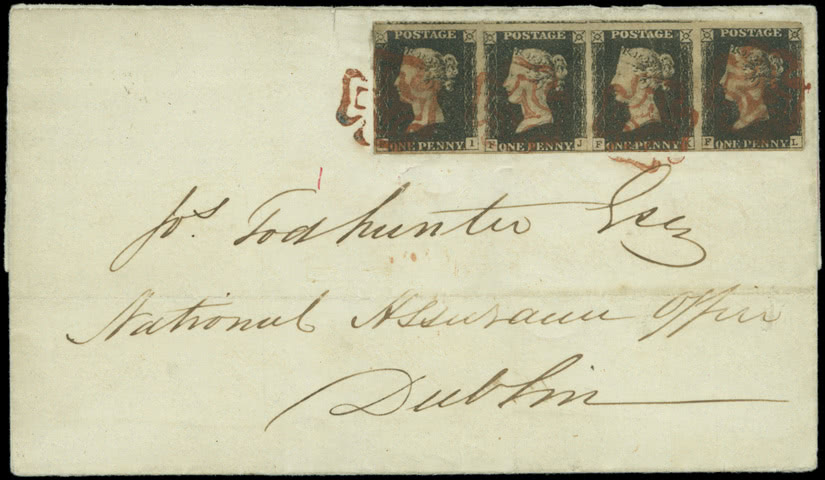 POSTAGE POSTAGE POSTAGE POSTAGE
ONE PENNY I F ONE PENNY J F ONE PENNY K F ONE PENNY L
Jos Todhunter Esq
National Assurance Office
Dublin